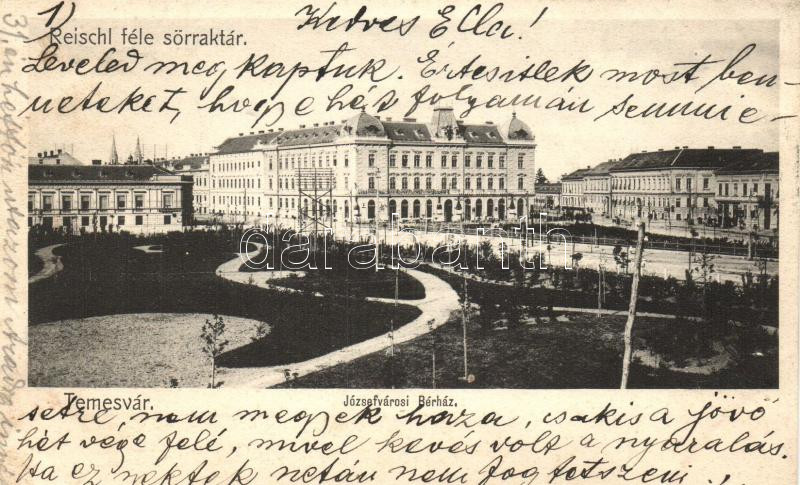 1)
Kedves Ella!
Reischl féle sörraktár.
Leveled meg kaptuk. Értesitlek most ben-
neteket, hogy e hét folyamán semmie-
darabanth
Temesvár.
Józsefvárosi Bérház.
setre, nem megyek haza, csakis a jövö
hét vége felé, mivel kevés volt a nyaralás.
Ha ez nektek netán nem fog tetszeni,